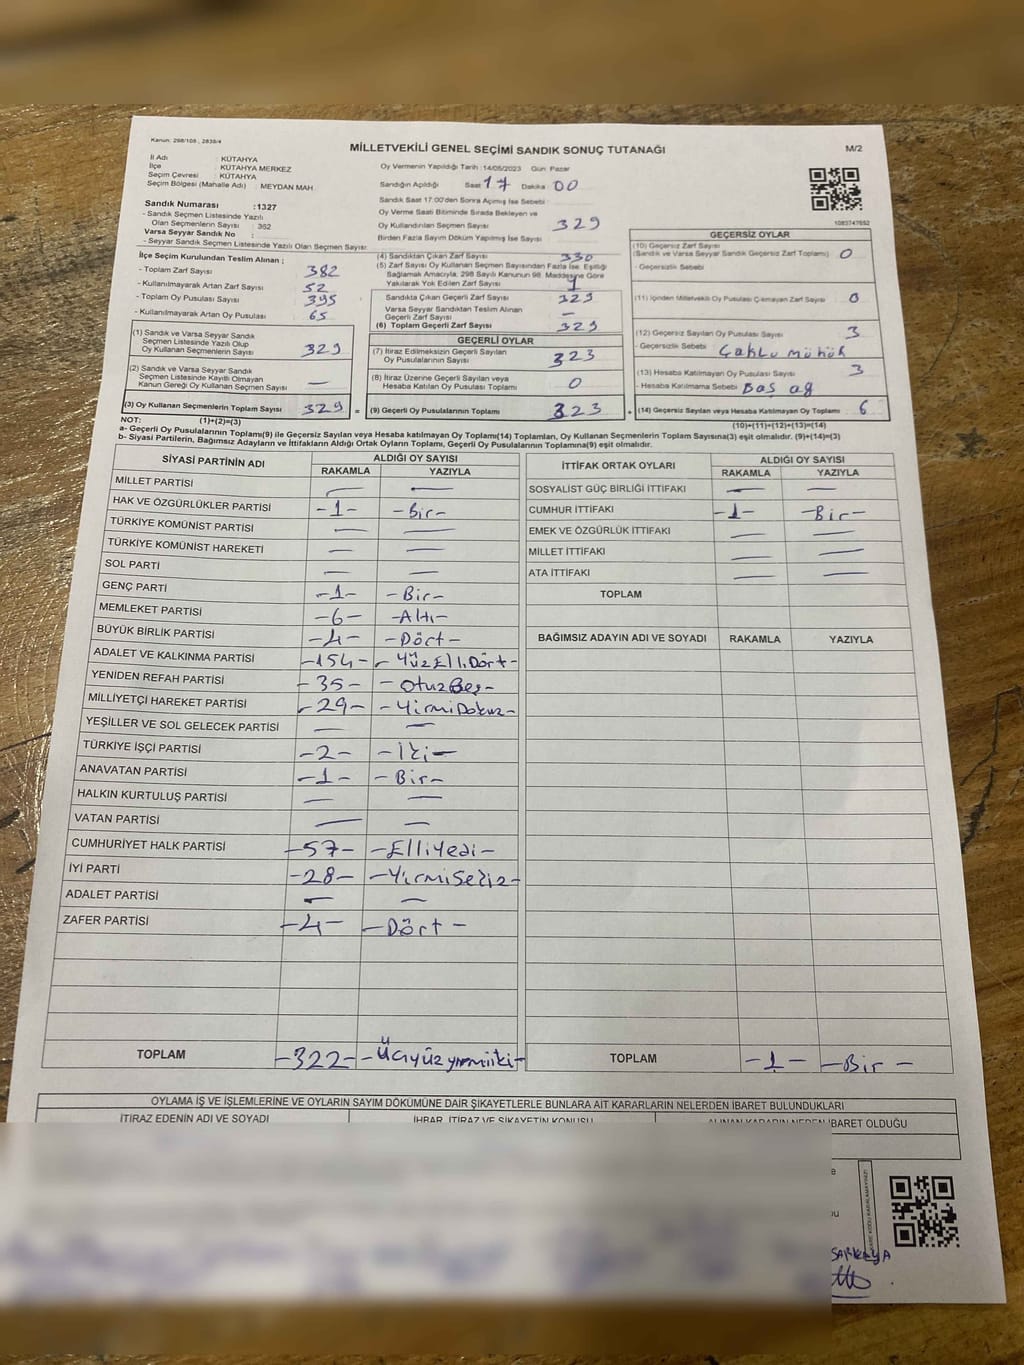 Kanun: 298/105 , 2839/4
MİLLETVEKİLİ GENEL SEÇİMİ SANDIK SONUÇ TUTANAĞI
M/2
İl Adı : KÜTAHYA
İlçe : KÜTAHYA MERKEZ
Seçim Çevresi : KÜTAHYA
Seçim Bölgesi (Mahalle Adı) : MEYDAN MAH
Sandık Numarası :1327
- Sandık Seçmen Listesinde Yazılı
Olan Seçmenlerin Sayısı : 362
Varsa Seyyar Sandık No :
- Seyyar Sandık Seçmen Listesinde Yazılı Olan Seçmen Sayısı:
Oy Vermenin Yapıldığı Tarih :14/05/2023 Gün: Pazar
Sandığın Açıldığı Saat 17 Dakika 00
Sandık Saat 17:00'den Sonra Açılmış İse Sebebi :
Oy Verme Saati Bitiminde Sırada Bekleyen ve
Oy Kullandırılan Seçmen Sayısı 329
Birden Fazla Sayım Döküm Yapılmış İse Sayısı
1083747692
İlçe Seçim Kurulundan Teslim Alınan ;
- Toplam Zarf Sayısı 382
- Kullanılmayarak Artan Zarf Sayısı 52
- Toplam Oy Pusulası Sayısı 395
- Kullanılmayarak Artan Oy Pusulası 65
(1) Sandık ve Varsa Seyyar Sandık
Seçmen Listesinde Yazılı Olup
Oy Kullanan Seçmenlerin Sayısı 329
(2) Sandık ve Varsa Seyyar Sandık
Seçmen Listesinde Kayıtlı Olmayan
Kanun Gereği Oy Kullanan Seçmen Sayısı —
(3) Oy Kullanan Seçmenlerin Toplam Sayısı 329
(1)+(2)=(3)
(4) Sandıktan Çıkan Zarf Sayısı 330
(5) Zarf Sayısı Oy Kullanan Seçmen Sayısından Fazla İse, Eşitliği
Sağlamak Amacıyla; 298 Sayılı Kanunun 98. Maddesine Göre
Yakılarak Yok Edilen Zarf Sayısı 1
Sandıkta Çıkan Geçerli Zarf Sayısı 329
Varsa Seyyar Sandıktan Teslim Alınan
Geçerli Zarf Sayısı —
(6) Toplam Geçerli Zarf Sayısı 329
GEÇERLİ OYLAR
(7) İtiraz Edilmeksizin Geçerli Sayılan
Oy Pusulalarının Sayısı 323
(8) İtiraz Üzerine Geçerli Sayılan veya
Hesaba Katılan Oy Pusulası Toplamı 0
= (9) Geçerli Oy Pusulalarının Toplamı 323
GEÇERSİZ OYLAR
(10) Geçersiz Zarf Sayısı
(Sandık ve Varsa Seyyar Sandık Geçersiz Zarf Toplamı) 0
- Geçersizlik Sebebi
(11) İçinden Milletvekili Oy Pusulası Çıkmayan Zarf Sayısı 0
(12) Geçersiz Sayılan Oy Pusulası Sayısı 3
- Geçersizlik Sebebi : Çoklu mühür
(13) Hesaba Katılmayan Oy Pusulası Sayısı 3
- Hesaba Katılmama Sebebi Boş
+ (14) Geçersiz Sayılan veya Hesaba Katılmayan Oy Toplamı 6
(10)+(11)+(12)+(13)=(14)
NOT:
a- Geçerli Oy Pusulalarının Toplamı(9) ile Geçersiz Sayılan veya Hesaba katılmayan Oy Toplamı(14) Toplamları, Oy Kullanan Seçmenlerin Toplam Sayısına(3) eşit olmalıdır. (9)+(14)=(3)
b- Siyasi Partilerin, Bağımsız Adayların ve İttifakların Aldığı Ortak Oyların Toplamı, Geçerli Oy Pusulalarının Toplamına(9) eşit olmalıdır.
SİYASİ PARTİNİN ADI
ALDIĞI OY SAYISI
RAKAMLA YAZIYLA
MİLLET PARTİSİ — —
HAK VE ÖZGÜRLÜKLER PARTİSİ -1- -Bir-
TÜRKİYE KOMÜNİST PARTİSİ — —
TÜRKİYE KOMÜNİST HAREKETİ — —
SOL PARTİ — —
GENÇ PARTİ -1- -Bir-
MEMLEKET PARTİSİ -6- -Altı-
BÜYÜK BİRLİK PARTİSİ -4- -Dört-
ADALET VE KALKINMA PARTİSİ -154- - YüzElliDört-
YENİDEN REFAH PARTİSİ -35- - OtuzBeş-
MİLLİYETÇİ HAREKET PARTİSİ -29- - YirmiDokuz-
YEŞİLLER VE SOL GELECEK PARTİSİ — —
TÜRKİYE İŞÇİ PARTİSİ -2- -İki-
ANAVATAN PARTİSİ -1- - Bir-
HALKIN KURTULUŞ PARTİSİ — —
VATAN PARTİSİ — —
CUMHURİYET HALK PARTİSİ -57- -ElliYedi-
İYİ PARTİ -28- -YirmiSekiz-
ADALET PARTİSİ — —
ZAFER PARTİSİ -4- -Dört -
TOPLAM -322- - Üçyüzyirmiiki-
İTTİFAK ORTAK OYLARI
ALDIĞI OY SAYISI
RAKAMLA YAZIYLA
SOSYALİST GÜÇ BİRLİĞİ İTTİFAKI — —
CUMHUR İTTİFAKI -1- -Bir-
EMEK VE ÖZGÜRLÜK İTTİFAKI — —
MİLLET İTTİFAKI — —
ATA İTTİFAKI — —
TOPLAM
BAĞIMSIZ ADAYIN ADI VE SOYADI RAKAMLA YAZIYLA
TOPLAM -1- -Bir -
OYLAMA İŞ VE İŞLEMLERİNE VE OYLARIN SAYIM DÖKÜMÜNE DAİR ŞİKAYETLERLE BUNLARA AİT KARARLARIN NELERDEN İBARET BULUNDUKLARI
İTİRAZ EDENİN ADI VE SOYADI
İHBAR, İTİRAZ VE ŞİKAYETİN KONUSU
ALINAN KARARIN NEDEN İBARET OLDUĞU